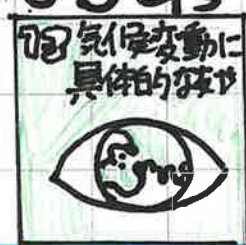 13 気候変動に
具体的な対